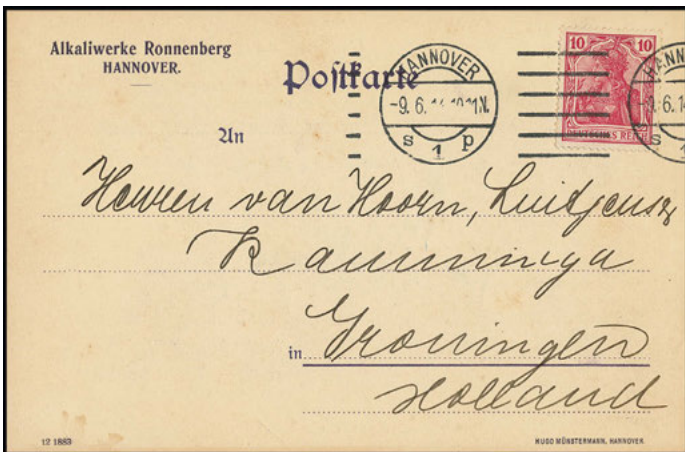 Alkaliwerke Ronnenberg
HANNOVER.
Postkarte
HANNOVER
-9.6.14.10-11V.
s 1 p
10 10
DEUTSCHES REICH
HANN
-9.6.14
s 1
An
Herren van Hoorn, Luitjens &
Kamminga
in Groningen
Holland
12 1883
HUGO MÜNSTERMANN, HANNOVER.